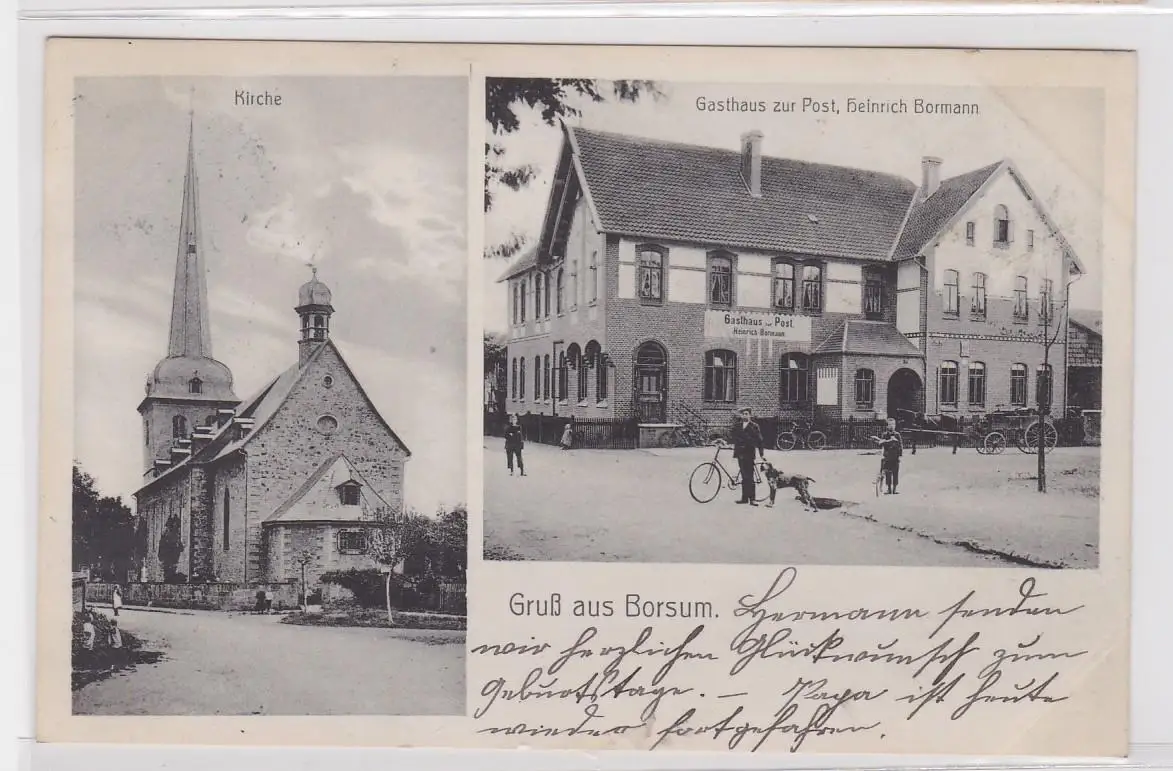 Kirche
Gasthaus zur Post, Heinrich Bormann
Gasthaus zur Post.
Heinrich Bormann
Gruß aus Borsum.
Hermann senden
wir herzlichen Glückwunsch zum
Geburtstage. — Papa ist heute
wieder fortgefahren.